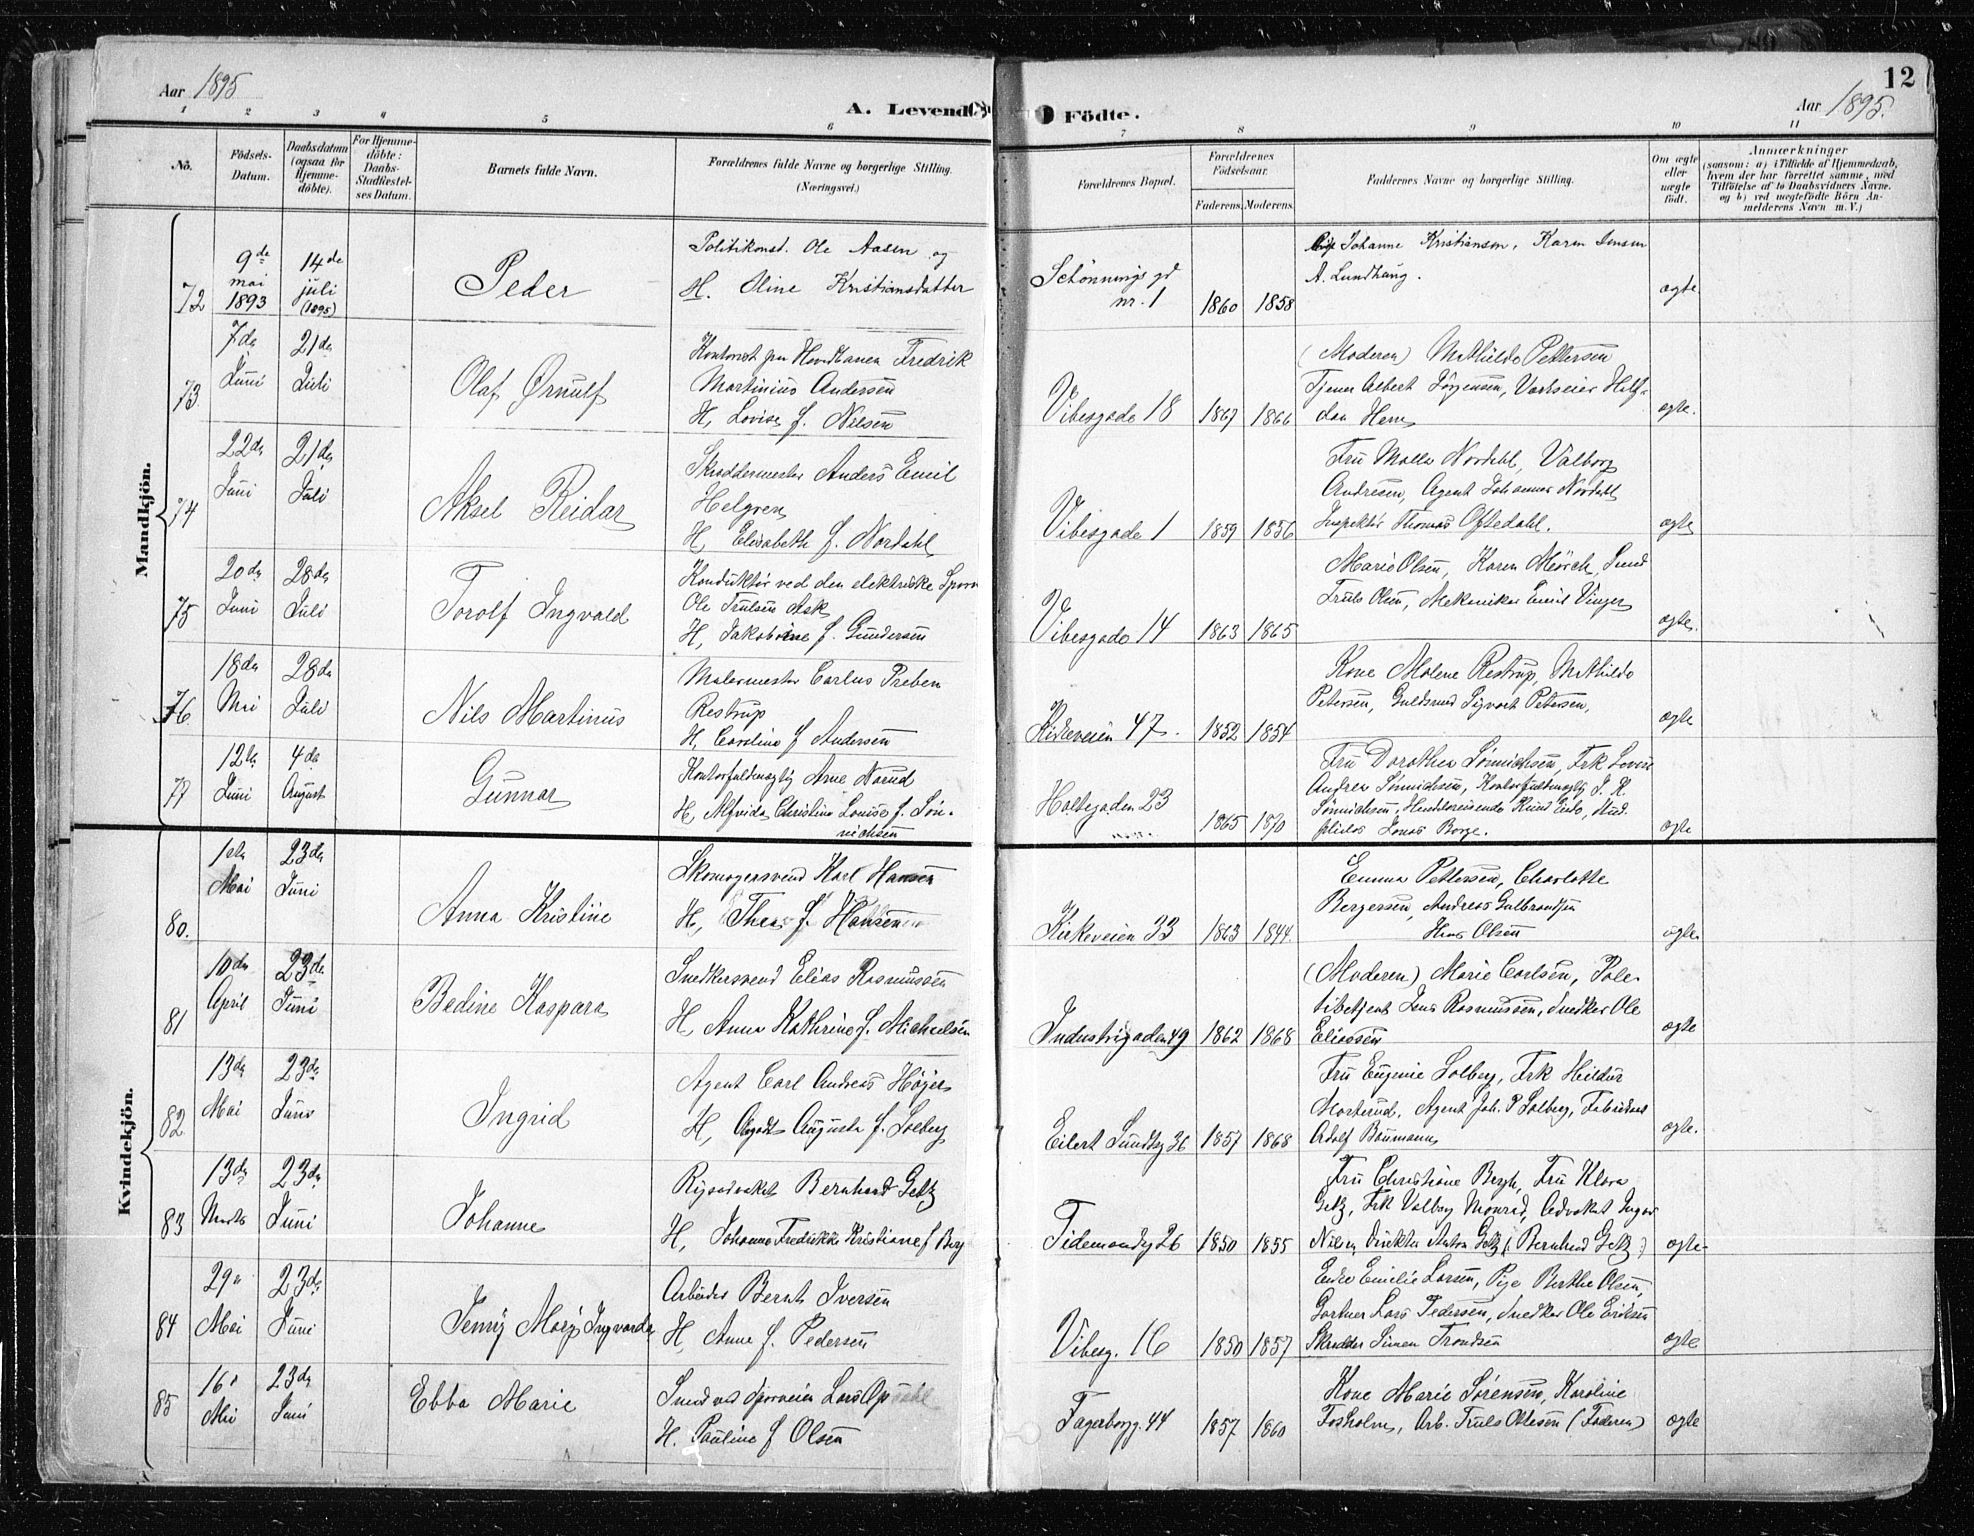 Aar 1895
A. Levende
Födte.
Aar 1895.
12
1 2 3 4 5 6 7 8 9 10 11
No.
Födsels-Datum.
Daabsdatum (ogsaa for Hjemmedöbte).
For Hjemmedöbte: Daabs-Stadfæstelses Datum.
Barnets fulde Navn.
Forældrenes fulde Navne og borgerlige Stilling. (Næringsvei.)
Forældrenes Bopæl.
Forældrenes Födselsaar.
Faderens. Moderens.
Faddernes Navne og borgerlige Stilling.
Om ægte eller uægte födt.
Anmærkninger
(saasom: a) i Tilfælde af Hjemmedaab,
hvem der har forrettet samme, med
Tilföielse af to Daabsvidners Navne.
og b) ved uægtefödte Börn Anmelderens Navn m. V.)
Mandkjön.
72
9de mai 1893
14de juli (1895)
Peder
Politikonst. Ole Aasen og
H. Oline Kristiansdatter
Schönnings gd nr. 1
1860 1858
Johanne Kristiansen, Karen Jensen
A. Lundhaug.
ægte.
73.
7de Juni
21de Juli
Olaf Ørnulf
Fredrik
Martinius Andersen
H, Lovise f. Nilsen
Vibesgade 18
1867 1866
(Moderen) Mathilde Pettersen
Tjener Albert Jørgensen, Værtseier Half-
dan
ægte.
74
22de Juni
21de Juli
Aksel Reidar
Skræddermester Anders Emil
Helgren
H, Elisabeth f. Nordahl
Vibesgade 1
1859 1856
Fru Malla Nordahl, Valborg
Andresen, Agent Johannes Nordahl
Inspektør Thomas Oftedahl.
ægte
75
20de Juni
28de Juli
Torolf Ingvald
Konduktør ved den elektriske Sporv
Ole Trulsen Ask
H, Jakobine f. Gundersen
Vibesgade 14
1863 1865
Marie Olsen, Karen Mörch, Smed
Truls Olsen, Mekaniker Emil Vinger
ægte.
76
18de Mai
28de Juli
Nils Martinus
Malermester Carlus Preben
Restrup
H, Caroline f Andersen
Kirkeveien 47.
1852 1854
Kone Malene Restrup, Mathilde
Petersen, Guldsmed Sigvart Petersen,
ægte
77
12te Juni
4de August
Gunnar
Kontorfuldmægtig Arne Norud
H, Alfrida Christine Louise f. Søn-
nichsen
Holtegaden 23
1865 1870
Fru Dorothea Sønnichsen, Frk Lovise
Andrea Sønnichsen, Kontorfuldmægtig J. K.
Sønnichsen, Handelsreisende Knud Eide, Stud.
philos Jonas Borge.
ægte
Kvindekjön.
80.
1ste Mai
23de Juni
Anna Kristine
Skomagersvend Karl Hansen
H, Thea f. Hansen
Kirkeveien 33
1863 1844.
Emma Pettersen, Charlotte
Bergersen, Andreas Gulbrandsen
Hans Olsen
ægte
81
10de April
23de Juni
Bedine Kaspara
Snedkersvend Elias Rasmussen
H, Anna Kathrine f. Michaelsen
Industrigaden 49
1862 1868
(Moderen) Marie Carlsen, Poli-
tibetjent Jens Rasmussen, Snedker Ole
Eliassen
ægte
82
13de Mai
23de Juni
Ingrid
Agent Carl Andreas Højer
H, Augusta f. Solberg
Eilert Sundtsg 36
1857 1868
Fru Eugenie Solberg, Frk Hildur
Morterud, Agent Joh. P Solberg, Fabrikant
Adolf Baumann
ægte.
83
13de Marts
23de Juni
Johanne
Rigsadvokat Bernhard Getz
H, Johanne Fredrikke Kristiane f Berg
Tidemandsg 26
1850 1855
Fru Christiane Bergh, Fru Klara
Getz, Frk Valborg Monrad, Advokat Ingar
Nilsen, Direktør Anton Getz, (Bernhard Getz)
ægte
84
29de Mai
23de Juni
Jenny Mary Ingvarda
Arbeider Bernt Iversen
H, Anne f. Pedersen
Vibesg. 16
1850 1857
Enke Emilie Larsen, Pige Berthe Olsen,
Gartner Lars Pedersen, Snedker Ole Eriksen
Skrædder Simen Trondsen
ægte
85
16de Mai
23de Juni
Ebba Marie
Smed ved Sporveien Lars Opsahl
H. Pauline f Olsen
Fagerborgg. 44
1857 1860
Kone Marie Sørensen, Karoline
Fosholm, Arb. Truls Ottesen (Faderen)
ægte